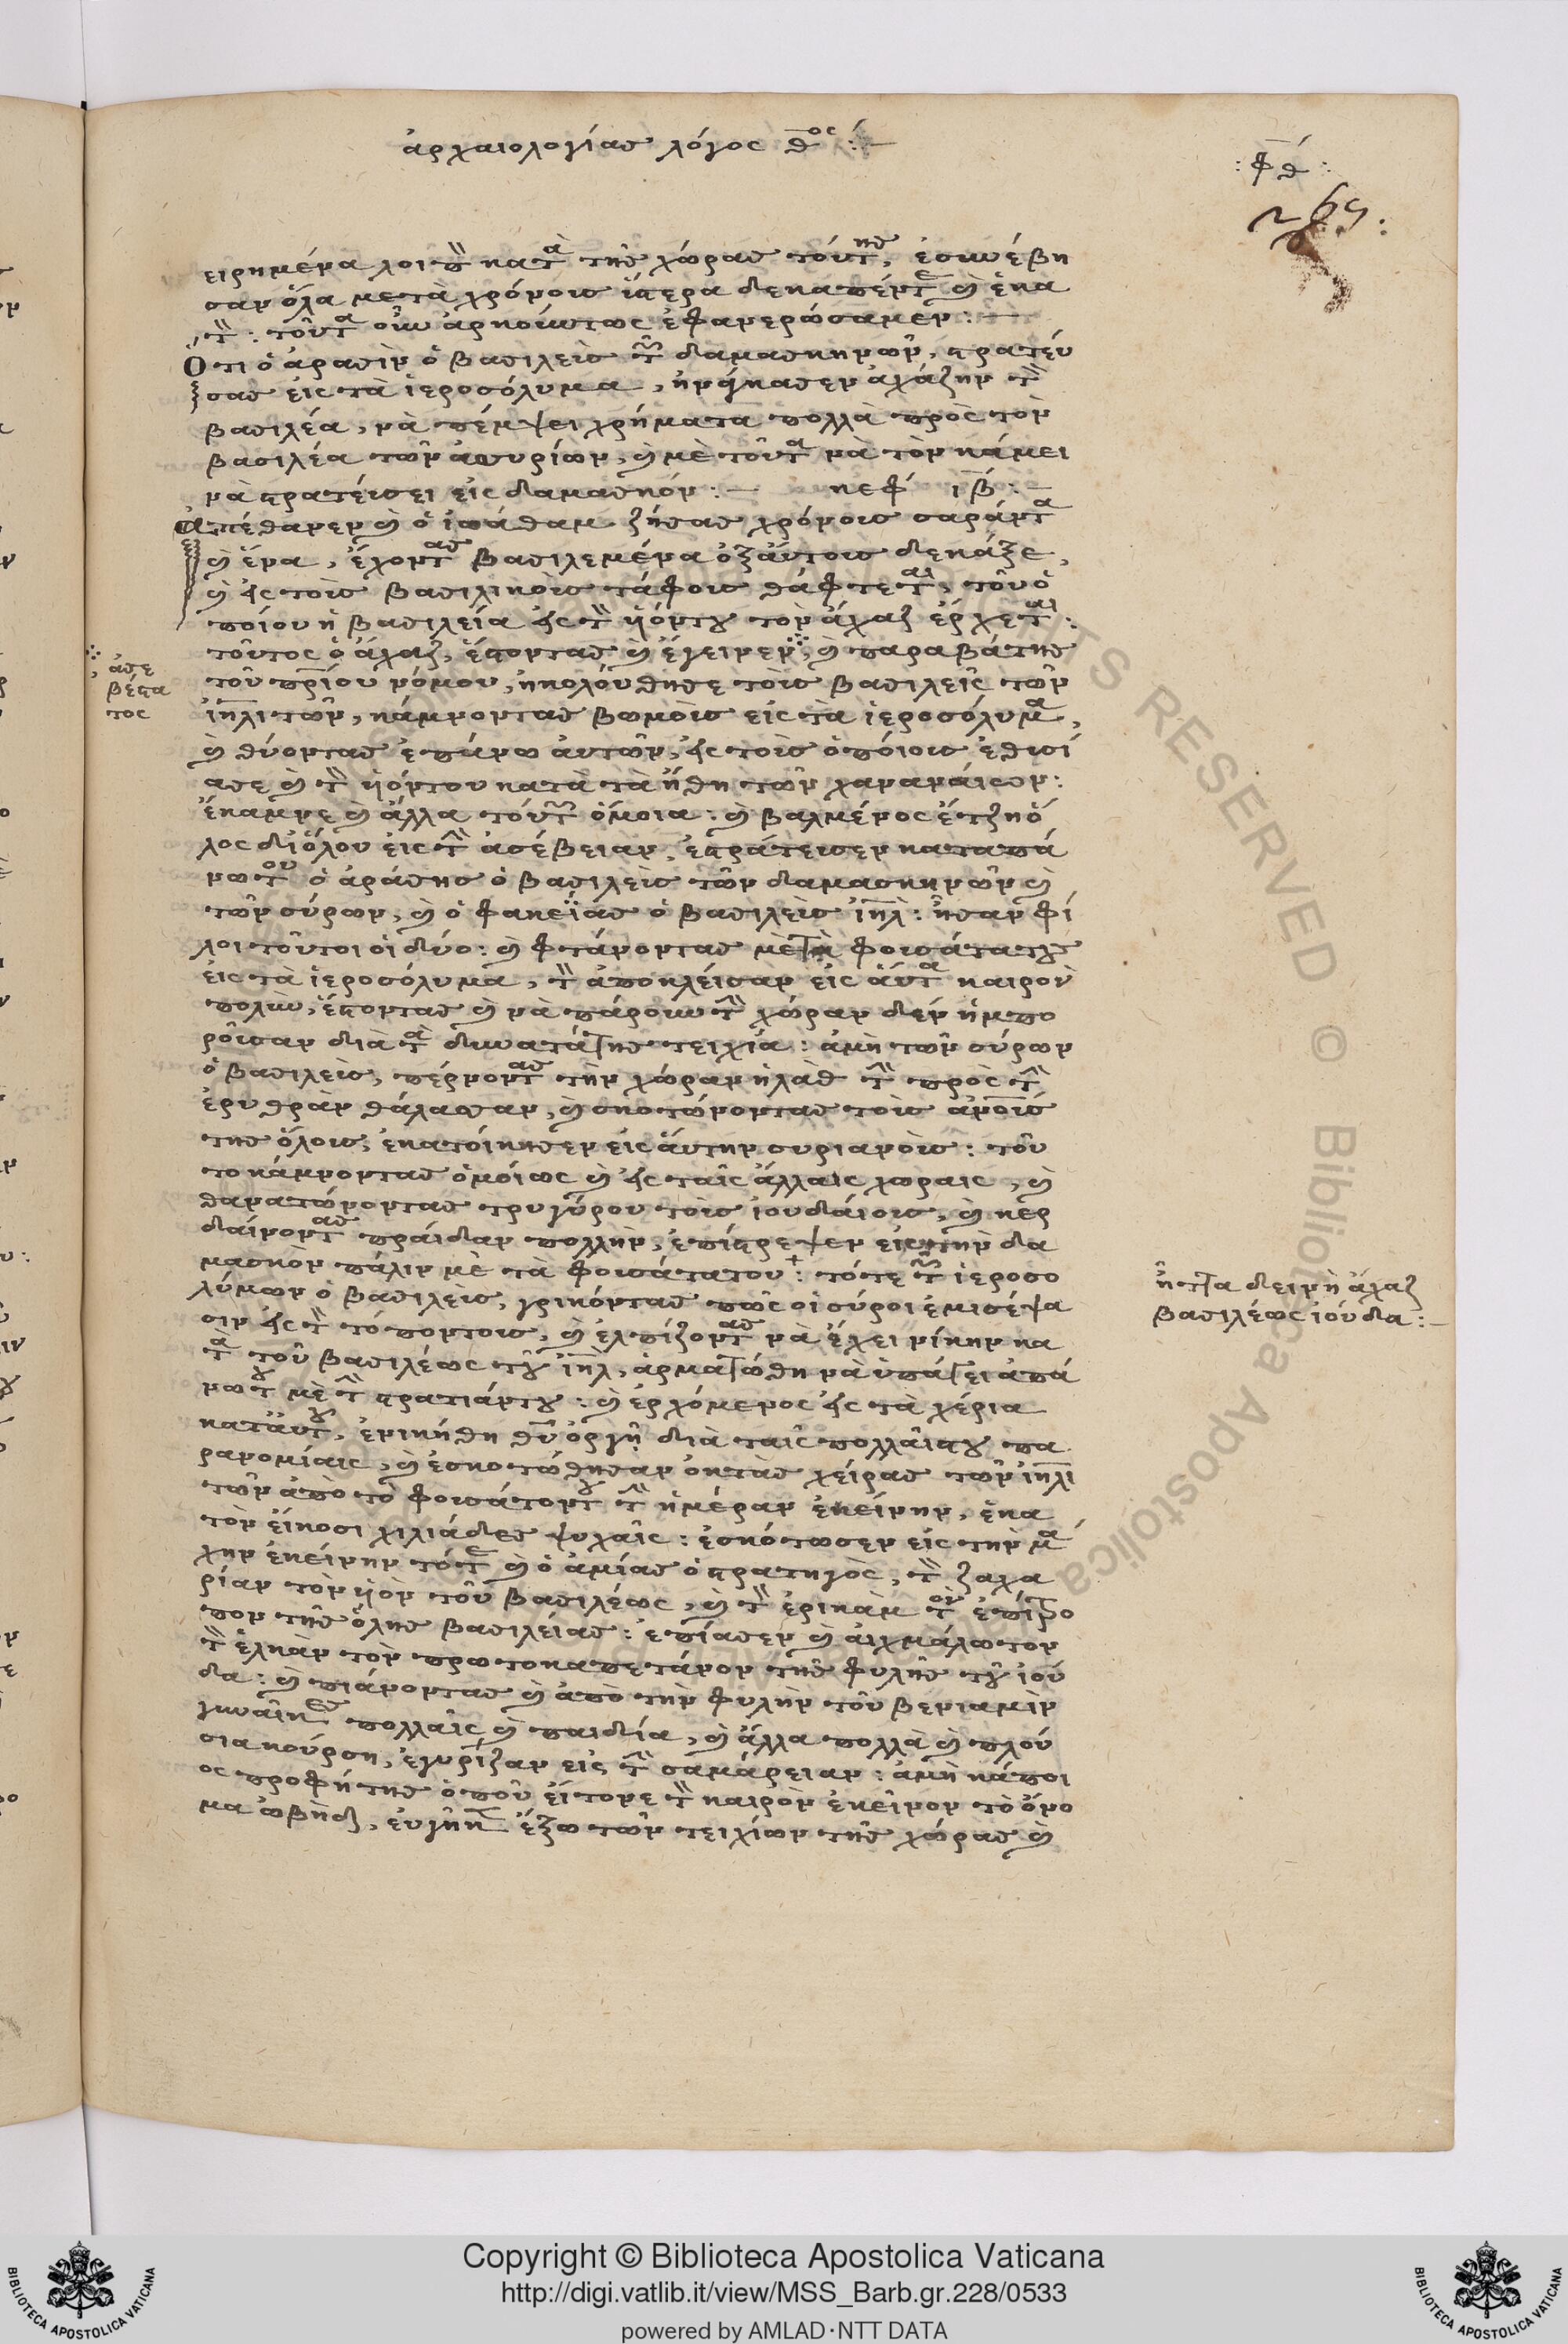 ἀρχαιολογίας λόγος θος :—
: φθ :
269 :
εἰρημένα λοιπὸν κατὰ τῆς χώρας τούτης, ἐσυνέβη
σαν ὅλα μετὰ χρόνους ὕστερα δεκαπέντε καὶ ἑκα
τόν : τοῦτα οὖν ἀρκούντως ἐφανερώσαμεν :—
Ὅτι ὁ ἀρασὶν ὁ βασιλεὺς τῶν δαμασκηνῶν, στρατεύ
σας εἰς τὰ ἱεροσόλυμα, ἠνάγκασεν ἀχάζην τὸν
βασιλέα, νὰ πέμψει χρήματα πολλὰ πρὸς τὸν
βασιλέα τῶν ἀσσυρίων, καὶ μὲ τοῦτα νὰ τὸν κάμει
νὰ στρατεύσει εἰς δαμασκόν :— κεφ ιβ :—
Ἀπέθανεν καὶ ὁ ἰωάθαμ ζήσας χρόνους σαράντα
καὶ ἕνα, ἔχοντας βασιλεμένα ὀξαύτους δεκάξε,
καὶ εἰς τοὺς βασιλικοὺς τάφους θάφτεται, τοῦ ὁ
ποίου ἡ βασιλεία εἰς τὸν ὑιόντου τὸν ἄχαζ ἔρχεται :
τοῦτος ὁ ἄχαζ, ἔστοντας καὶ ἔγεινεν, καὶ παραβάτης
ἀσε
βέστα
τος
τοῦ πρίου νόμου, ἠκολούθησε τοὺς βασιλεῖς τῶν
ἰηλιτῶν, κάμνοντας βωμοὺς εἰς τὰ ἱεροσόλυμα,
καὶ θύοντας ἐπάνω αὐτῶν, εἰς τοὺς ὁποίους ἐθυσί
ασε καὶ τὸν ὑιόντου κατὰ τὰ ἤθη τῶν χαναναίων :
ἔκαμνε καὶ ἄλλα τούτων ὅμοια : καὶ βαλμένος ἔτζη ὅ
λος διόλου εἰς τὴν ἀσέβειαν, ἐστράτευσεν καταπά
νωτον ὁ ἀράσης ὁ βασιλεὺς τῶν δαμασκηνῶν καὶ
τῶν σύρων, καὶ ὁ φακεΐας ὁ βασιλεὺς ἰηλ : ἦσαν φί
λοι τοῦτοι οἱ δύο : καὶ φτάνοντας μὲ τὰ φουσάτατους
εἰς τὰ ἱεροσόλυμα, τὸν ἀποκλείσαν εἰς αὗτα καιρὸν
πολὺν, ἔστοντας καὶ νὰ πάρουν τὴν χώραν δὲν ἠμπο
ροῦσαν διὰ τὰ δυνατά της τειχία : ἀμὴ τῶν σύρων
ὁ βασιλεὺς, πέρνοντας τὴν χώραν ἡλὰθ τὴν πρὸς τὴν
ἐρυθρὰν θάλασσαν, καὶ σκοτώνοντας τοὺς ἀνους
της ὅλους, ἐκατοίκησεν εἰς αὔτην συριανούς : τοῦ
το κάμνοντας ὁμοίως καὶ εἰς ταῖς ἄλλαις χώραις, καὶ
θανατώνοντας τρυγύρου τοὺς ἰουδαίους, καὶ κερ
δαίνοντας πράιδαν πολλὴν, ἐπίστρεψεν εἰς τὴν δα
μασκὸν πάλιν μὲ τὰ φουσάτατου : τότε τῶν ἱεροσο
ἧττα δεινὴ ἄχαζ
βασιλέως ἰούδα :—
λύμων ὁ βασιλεὺς, γρικόντας πῶς οἱ σύροι ἐμισέψα
σιν εἰς τὸν τόποντους, καὶ ἐλπίζοντας νὰ ἔχει νίκην κα
τὰ τοῦ βασιλέως τοῦ ἰηλ, ἀρματώθη νὰ ὑπάγει ἀπά
νωτου μὲ τὴν στρατιάντου : καὶ ἐρχόμενος εἰς τὰ χέρια
καταύτου, ἐνικήθη θυ ὀργῇ διὰ ταῖς πολλαίςτου πα
ρανομίαις, καὶ ἐσκοτώθησαν ὀκτὰς χείρας τῶν ἰηλι
τῶν ἀπὸ τὸ φουσάτοντου τὴν ἡμέραν ἐκείνην, ἑκα
τὸν εἴκοσι χιλιάδες ψυχαῖς : ἐσκότωσεν εἰς τὴν μά
χην ἐκείνην τότε καὶ ὁ ἀμίας ὁ στρατηγὸς, τὸν ζαχα
ρίαν τὸν ὑιὸν τοῦ βασιλέως, καὶ τὸν ἐρικὰμ τὸν ἐπίτρο
πον τῆς ὅλης βασιλείας : ἐπίασεν καὶ αἰχμάλωτον
τὸν ἑλκὰν τὸν πρωτοκαπετάνον τῆς φυλῆς τοῦ ἰού
δα : καὶ πιάνοντας καὶ ἀπὸ τὴν φυλὴν τοῦ βενιαμὶν
γυναίκες πολλαῖς καὶ παιδία, καὶ ἄλλα πολλὰ καὶ πλού
σια κούρση, ἐγυρίζαν εἰς τὴν σαμάρειαν : ἀμὴ κάποι
ος προφήτης ὁποῦ εἴτονε τὸν καιρὸν ἐκεῖνον τὸ ὄνο
μα ὠβὴδ, εὐγῆκεν ἔξω τῶν τειχίων τῆς χώρας καὶ
Copyright © Biblioteca Apostolica Vaticana
http://digi.vatlib.it/view/MSS_Barb.gr.228/0533
powered by AMLAD·NTT DATA